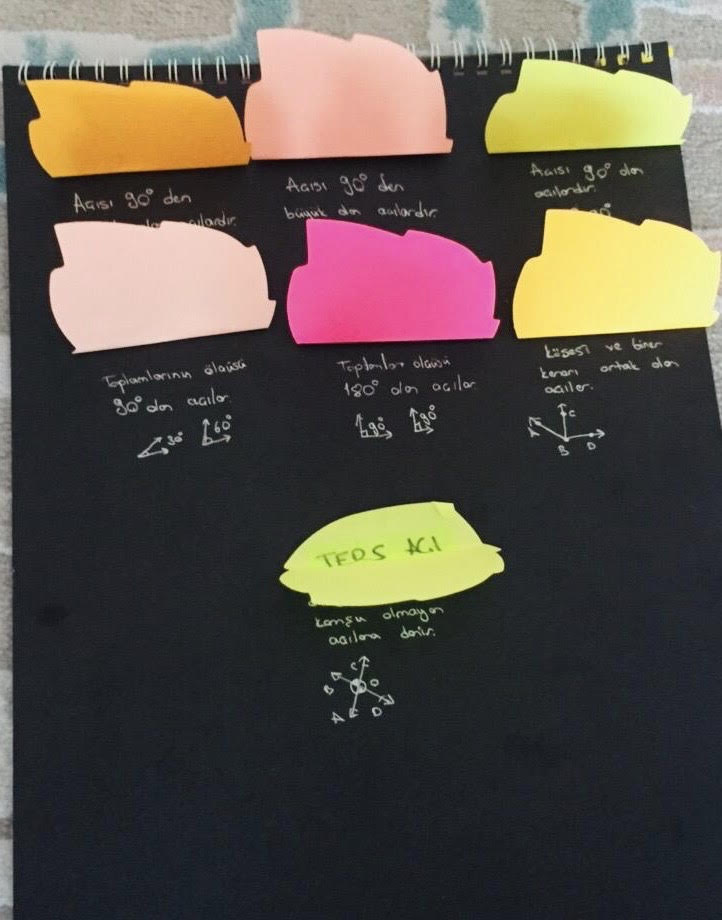 Açısı 90° den
açılardır.
Açısı 90° den
büyük olan açılardır.
Açısı 90° olan
açılardır.
90°
Toplamlarının ölçüsü
90° olan açılar
30° 60°
Toplamlar ölçüsü
180° olan açılar
90° 90°
Köşesi ve birer
kenarı ortak olan
açılar.
A C B D
TERS AÇI
komşu olmayan
açılara denir.
C
B O
A D